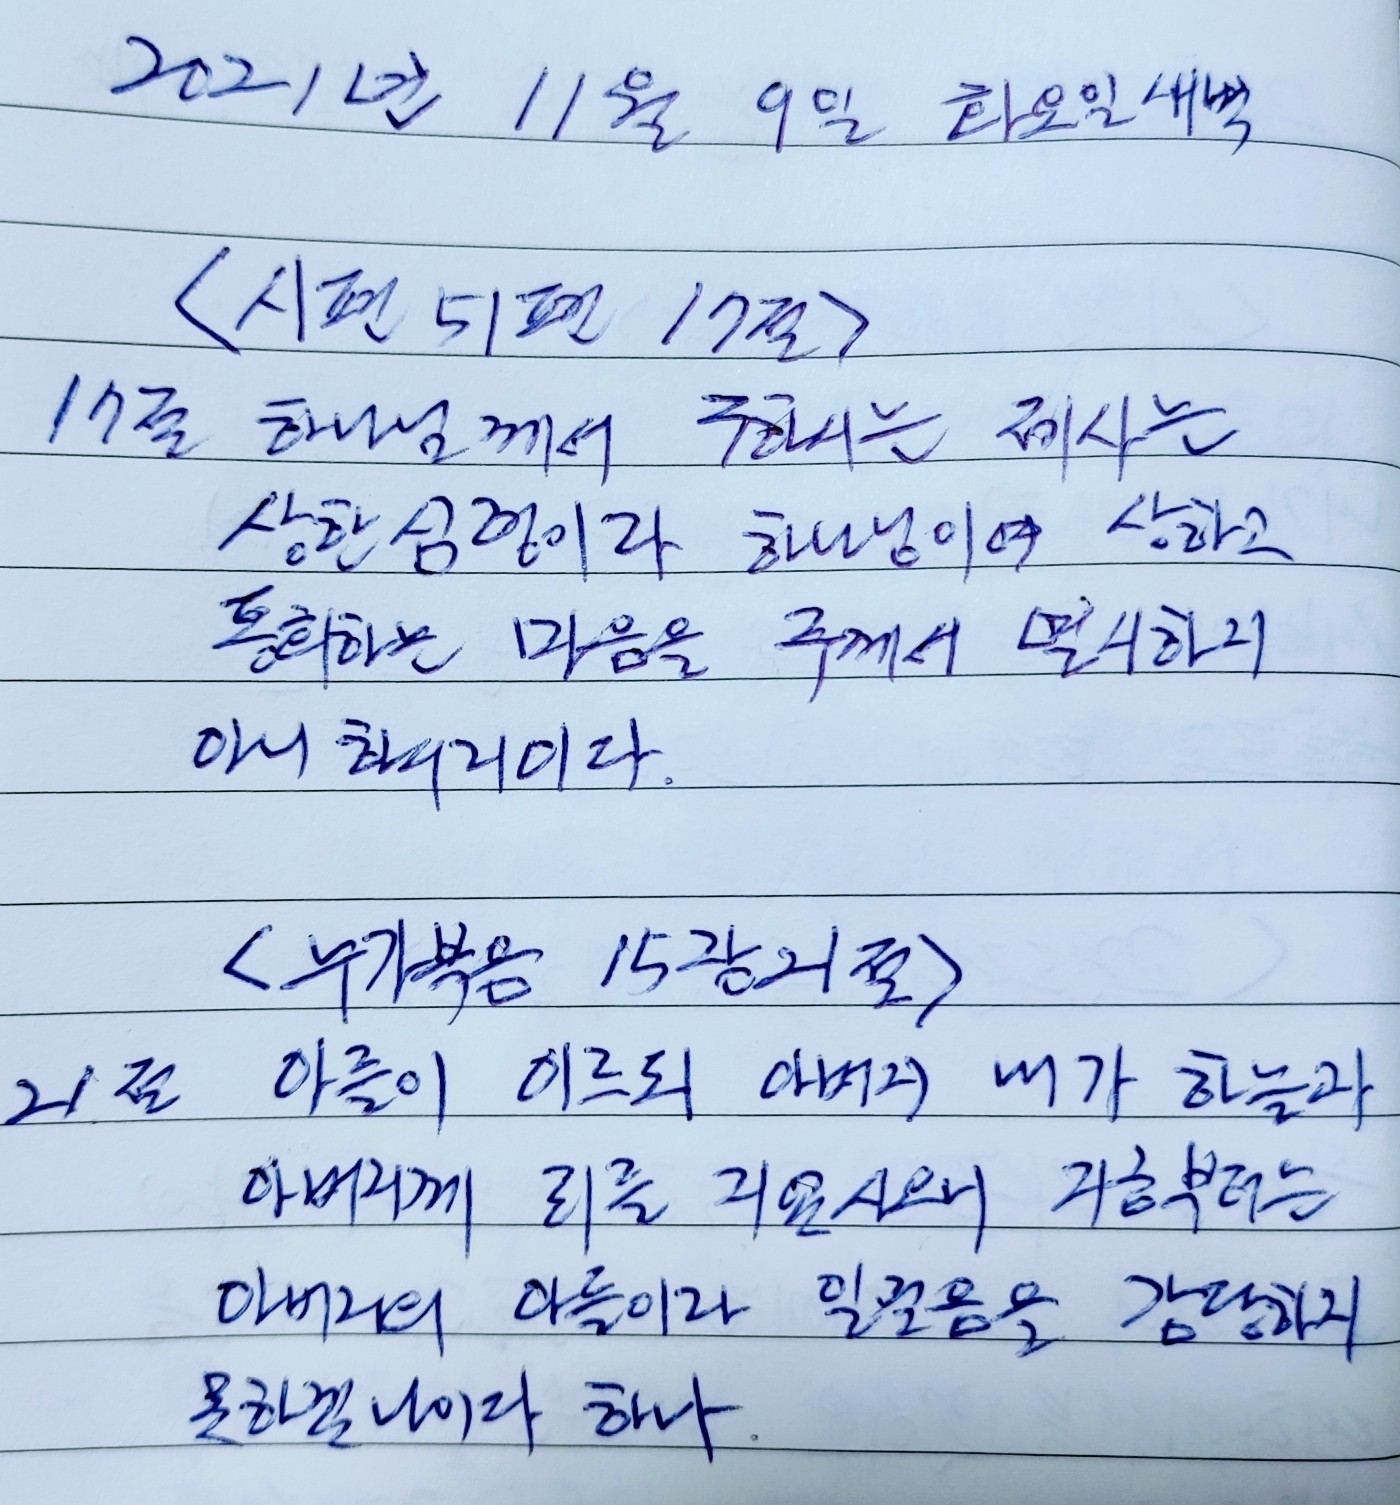 2021년 11월 9일 화요일새벽
<시편 51편 17절>
17절 하나님께서 구하시는 제사는
상한심령이라 하나님이여 상하고
통회하는 마음을 주께서 멸시하지
아니 하시리이다.
<누가복음 15장21절>
21절 아들이 이르되 아버지 내가 하늘과
아버지께 죄를 지었사오니 지금부터는
아버지의 아들이라 일컬음을 감당하지
못하겠나이다 하나.